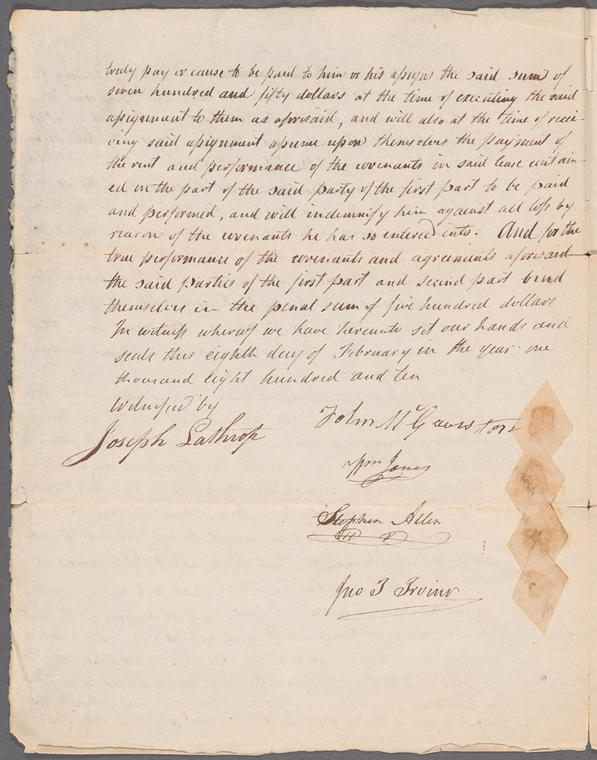 truly pay or cause to be paid to him or his assigns the said sum of
seven hundred and fifty dollars at the time of executing the said
assignment to them as aforesaid, and will also at the time of recei-
ving said assignment assume upon themselves the payment of
the rent and performance of the covenants in said lease contain-
ed on the part of the said party of the first part to be paid
and performed, and will indemnify him against all loss by
reason of the covenants he has so entered into. And for the
true performance of the covenants and agreements aforesaid
the said parties of the first part and second part bind
themselves in the penal sum of five hundred dollars
In witness whereof we have hereunto set our hands and
seals this eighth day of February in the year one
thousand eight hundred and ten
Witnessed by
Joseph Lathrop
John
Wm Jones
Stephen Allen
Jno T Irving